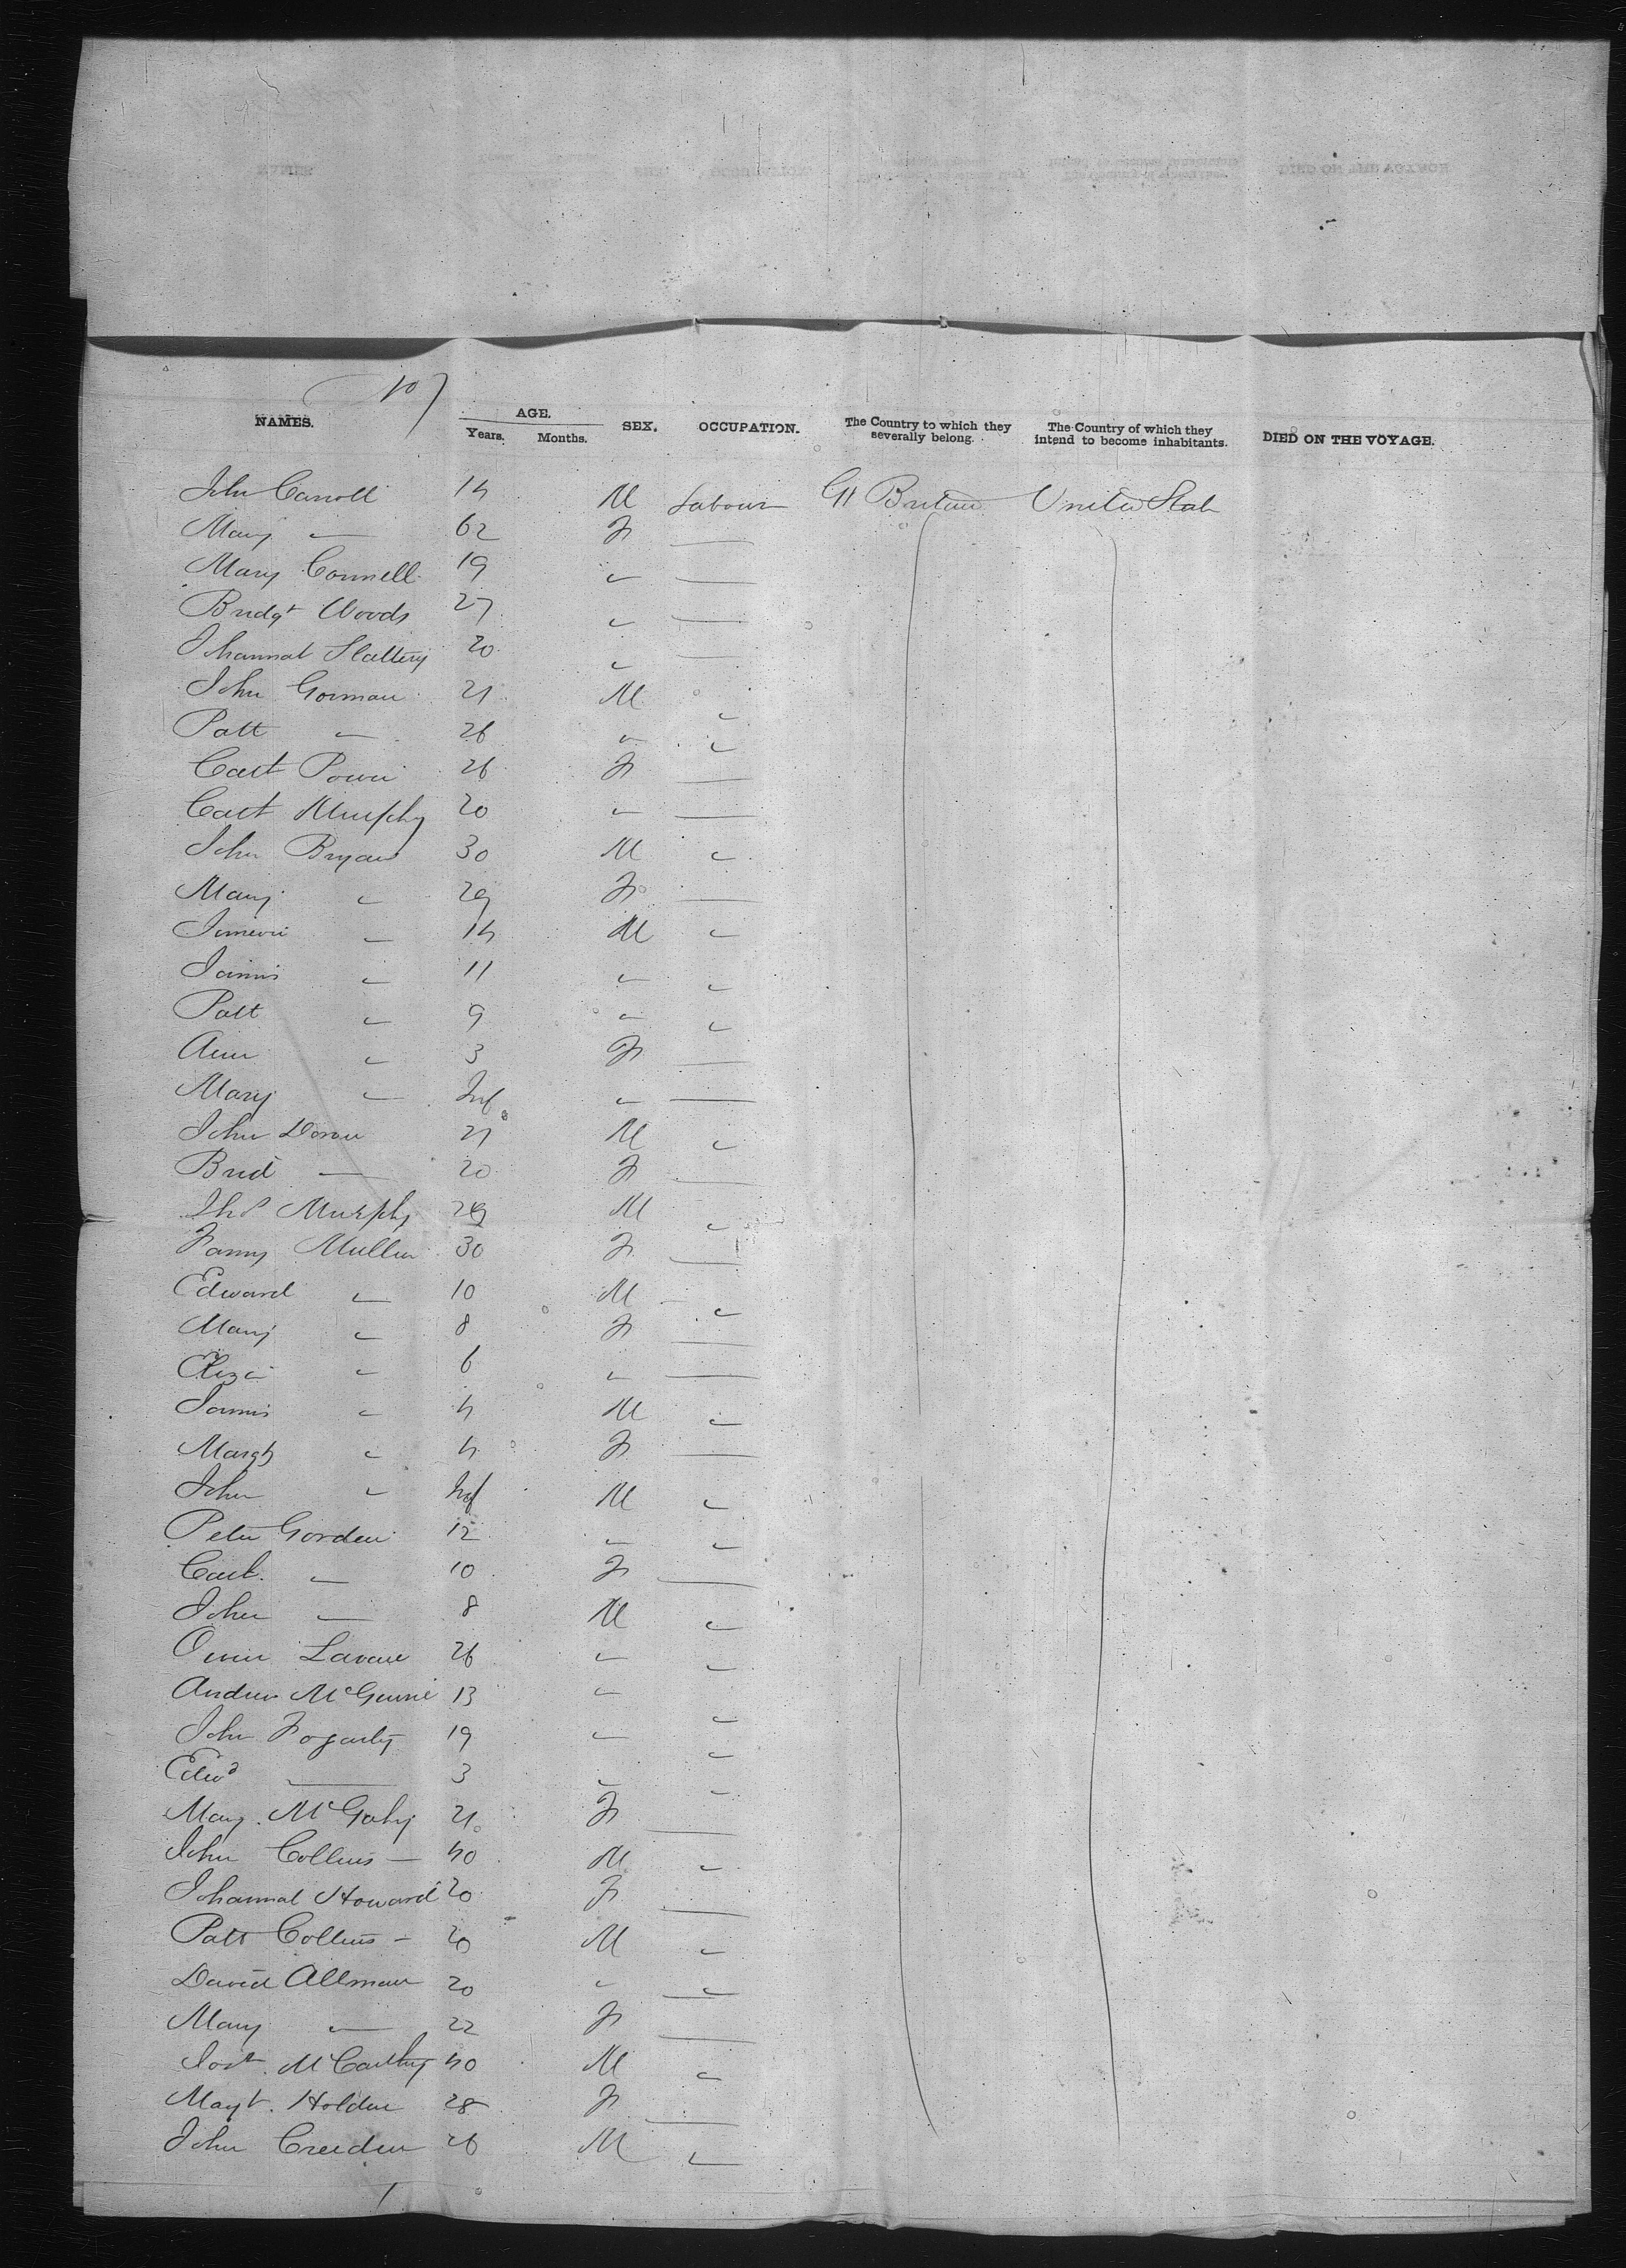 107
NAMES. AGE. Years. Months. SEX. OCCUPATION. The Country to which they severally belong. The Country of which they intend to become inhabitants. DIED ON THE VOYAGE.
John Carroll 14 M Labour Gt Britain United Stat
Mary — 62 F —
Mary Connell 19 " —
Bridgt Woods 27 " —
Johannah Slattery 20 " —
John Gorman 21 M "
Patt " 26 " "
Cart Power 26 F —
Cart Murphy 20 " —
John Bryan 30 M "
Mary " 29 F —
" 14 M "
James " 11 " "
Patt " 9 " "
Ann " 3 F —
Mary " Inf " —
John Doran 21 M "
Brid — 20 F —
Thos Murphy 29 M "
Fanny Mullin 30 F —
Edward " 10 M "
Mary " 8 F —
Eliza " 6 " —
James " 4 M "
Margt " 4 F —
John " Inf M "
Peter Gorden 12 " "
Cart. " 10 F —
John — 8 M "
Owen 26 " "
Andrew 13 " "
John Fogarty 19 " "
Edwd — 3 " "
Mary McGahy 21 F —
John Collins — 40 M "
Johannah Howard 20 F —
Patt Collins — 20 M "
David Allman 20 " "
Mary — 22 F —
McCarthy 40 M "
Mayt. Holden 28 F —
John Creeden 26 M "